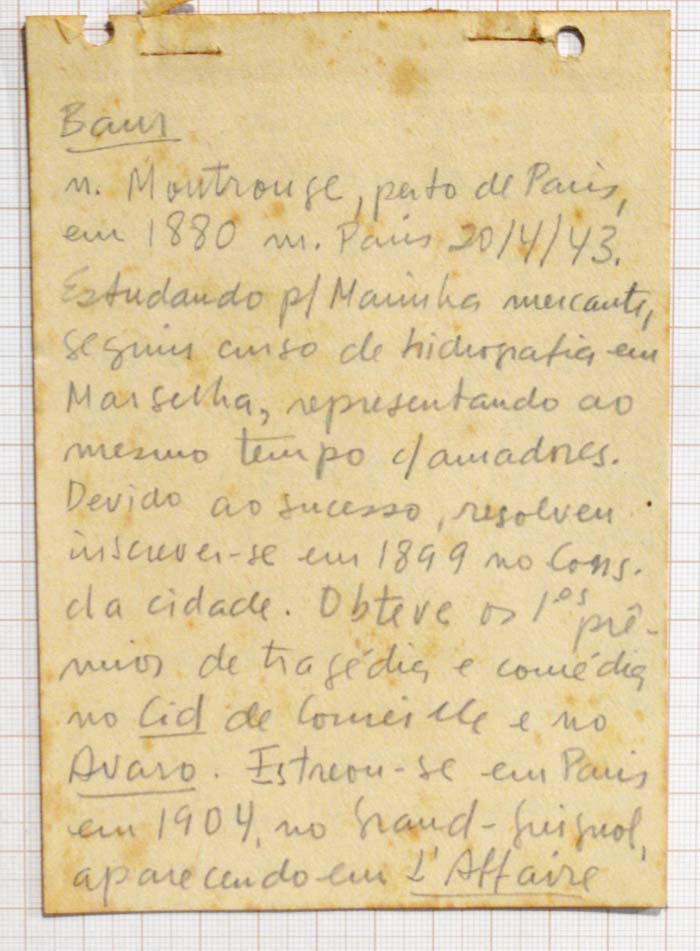 Baur
n. Montrouge, perto de Paris,
em 1880 m. Paris 20/4/43.
Estudando p/ Marinha mercante,
seguiu curso de hidrografia em
Marselha, representando ao
mesmo tempo c/amadores.
Devido ao sucesso, resolveu
inscrever-se em 1899 no Cons.
da cidade. Obteve os 1ºs prê-
mios de tragédia e comédia
no Cid de Corneille e no
Avaro. Estreou-se em Paris
em 1904, no Grand-Guignol,
aparecendo em L'Affaire